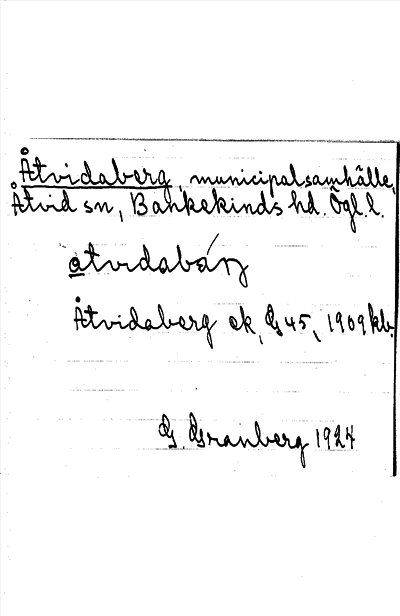 Åtvidaberg, municipalsamhälle,
Åtvid sn, Bankekinds hd. Ögl. l.
Åtvidaberg ek, G 45, 1909 kb.
G. Granberg 1924